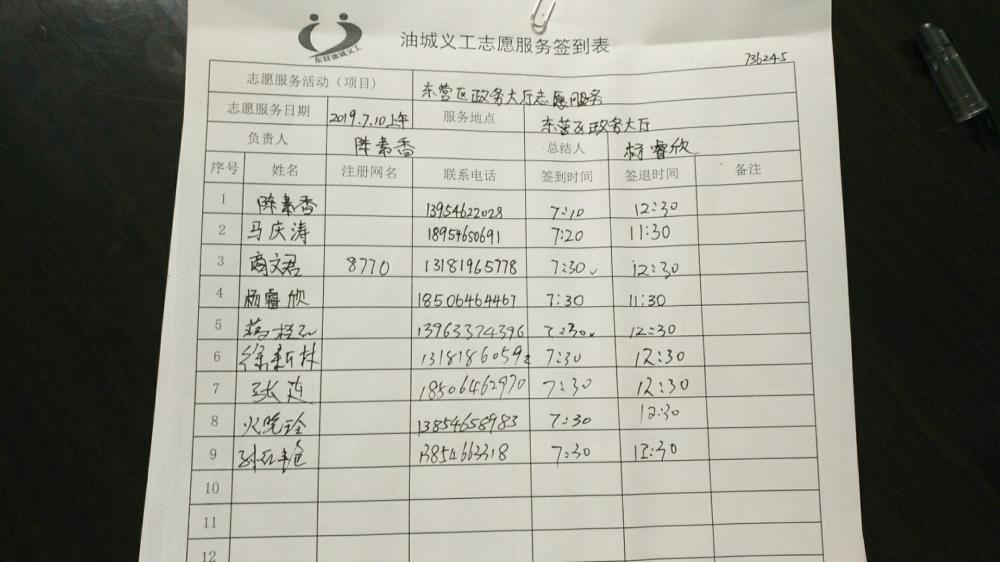 东营油城义工
油城义工志愿服务签到表
736245
志愿服务活动（项目） 东营区政务大厅志愿服务
志愿服务日期 2019.7.10上午 服务地点 东营区政务大厅
负责人 陈素香 总结人 杨睿欣
序号 姓名 注册网名 联系电话 签到时间 签退时间 备注
1 陈素香 13954622028 7:10 12:30
2 马庆涛 18954650691 7:20 11:30
3 商文君 8770 13181965778 7:30 12:30
4 杨睿欣 18506464467 7:30 11:30
5 13963374396 7:30 12:30
6 徐新林 13181860592 7:30 12:30
7 张莲 18506462970 7:30 12:30
8 火晓玲 13854658983 7:30 12:30
9 13854663318 7:30 12:30
10
11
12